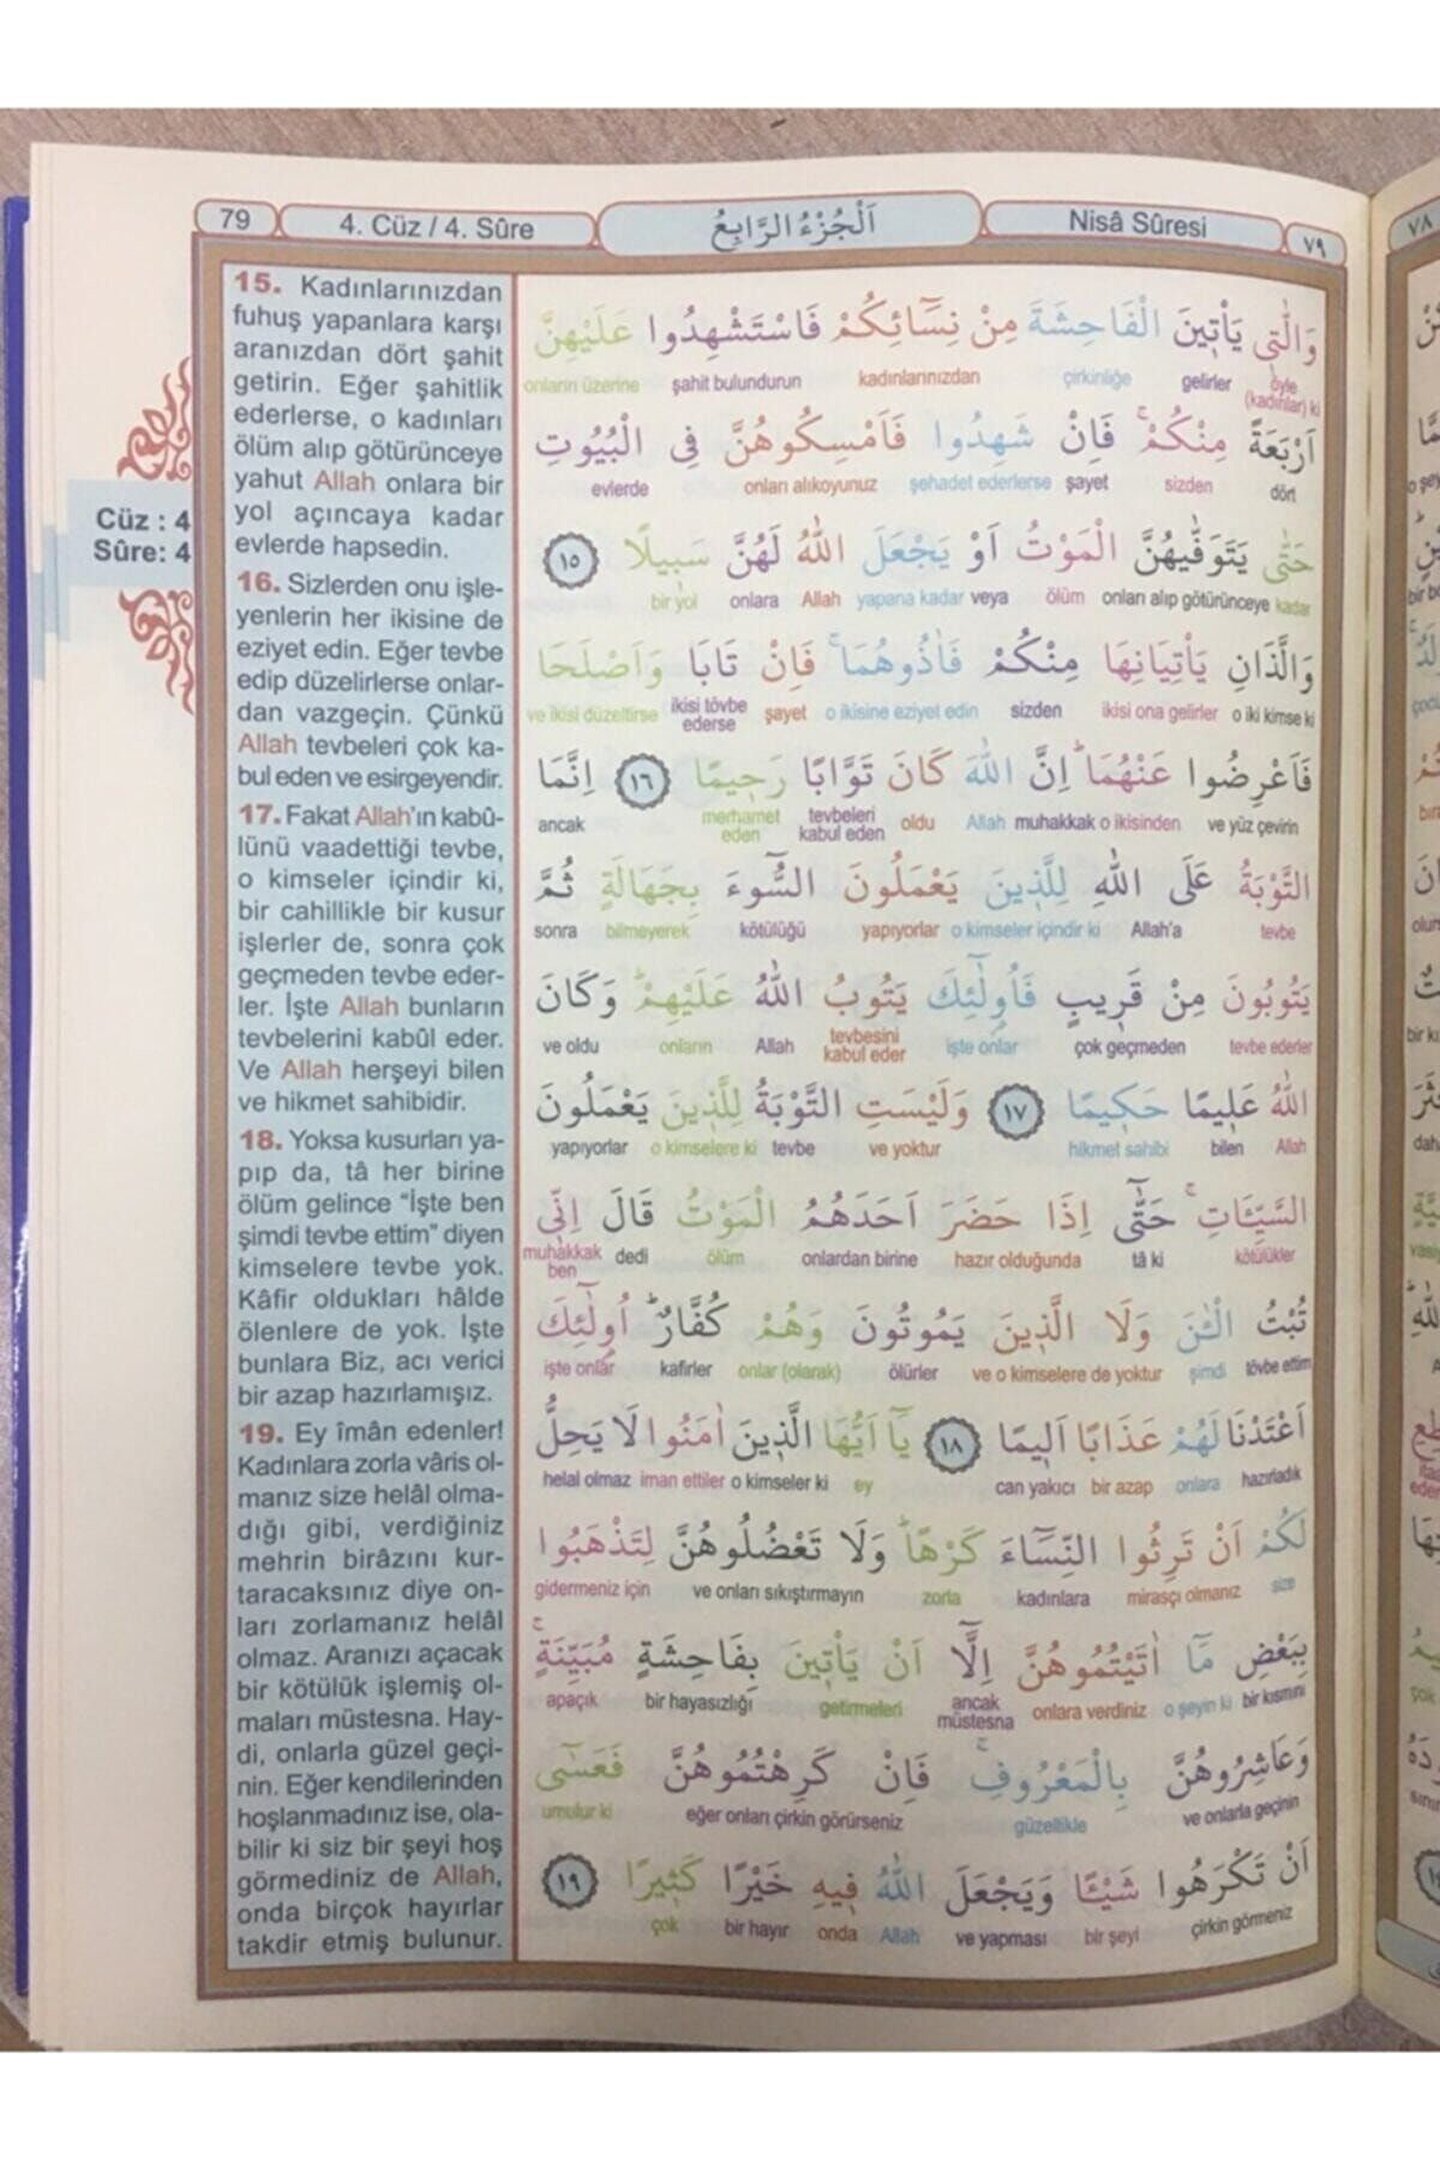 79
4. Cüz / 4. Sûre
اَلْجُزْءُ الرَّابِعُ
Nisâ Sûresi
٧٩
Cüz : 4
Sûre: 4
15. Kadınlarınızdan
fuhuş yapanlara karşı
aranızdan dört şahit
getirin. Eğer şahitlik
ederlerse, o kadınları
ölüm alıp götürünceye
yahut Allah onlara bir
yol açıncaya kadar
evlerde hapsedin.
16. Sizlerden onu işle-
yenlerin her ikisine de
eziyet edin. Eğer tevbe
edip düzelirlerse onlar-
dan vazgeçin. Çünkü
Allah tevbeleri çok ka-
bul eden ve esirgeyendir.
17. Fakat Allah'ın kabû-
lünü vaadettiği tevbe,
o kimseler içindir ki,
bir cahillikle bir kusur
işlerler de, sonra çok
geçmeden tevbe eder-
ler. İşte Allah bunların
tevbelerini kabûl eder.
Ve Allah herşeyi bilen
ve hikmet sahibidir.
18. Yoksa kusurları ya-
pıp da, tâ her birine
ölüm gelince “İşte ben
şimdi tevbe ettim” diyen
kimselere tevbe yok.
Kâfir oldukları hâlde
ölenlere de yok. İşte
bunlara Biz, acı verici
bir azap hazırlamışız.
19. Ey îmân edenler!
Kadınlara zorla vâris ol-
manız size helâl olma-
dığı gibi, verdiğiniz
mehrin birâzını kur-
taracaksınız diye on-
ları zorlamanız helâl
olmaz. Aranızı açacak
bir kötülük işlemiş ol-
maları müstesna. Hay-
di, onlarla güzel geçi-
nin. Eğer kendilerinden
hoşlanmadınız ise, ola-
bilir ki siz bir şeyi hoş
görmediniz de Allah,
onda birçok hayırlar
takdir etmiş bulunur.
وَالّٰتٖى يَأْتٖينَ الْفَاحِشَةَ مِنْ نِسَٓائِكُمْ فَاسْتَشْهِدُوا عَلَيْهِنَّ
öyle (kadınlar) ki gelirler çirkinliğe kadınlarınızdan şahit bulundurun onların üzerine
اَرْبَعَةً مِنْكُمْۚ فَاِنْ شَهِدُوا فَاَمْسِكُوهُنَّ فِى الْبُيُوتِ
dört sizden şayet şehadet ederlerse onları alıkoyunuz evlerde
حَتّٰى يَتَوَفّٰيهُنَّ الْمَوْتُ اَوْ يَجْعَلَ اللّٰهُ لَهُنَّ سَبٖيلًا ١٥
kadar onları alıp götürünceye ölüm veya yapana kadar Allah onlara bir yol
وَالَّذَانِ يَأْتِيَانِهَا مِنْكُمْ فَاٰذُوهُمَاۚ فَاِنْ تَابَا وَاَصْلَحَا
o iki kimse ki ikisi ona gelirler sizden o ikisine eziyet edin şayet ikisi tövbe ederse ve ikisi düzeltirse
فَاَعْرِضُوا عَنْهُمَاؕ اِنَّ اللّٰهَ كَانَ تَوَّابًا رَحٖيمًا ١٦ اِنَّمَا
ve yüz çevirin o ikisinden muhakkak Allah oldu tevbeleri kabul eden merhamet eden ancak
التَّوْبَةُ عَلَى اللّٰهِ لِلَّذٖينَ يَعْمَلُونَ السُّٓوءَ بِجَهَالَةٍ ثُمَّ
tevbe Allah'a o kimseler içindir ki yapıyorlar kötülüğü bilmeyerek sonra
يَتُوبُونَ مِنْ قَرٖيبٍ فَاُولٰٓئِكَ يَتُوبُ اللّٰهُ عَلَيْهِمْؕ وَكَانَ
tevbe ederler çok geçmeden işte onlar tevbesini kabul eder Allah onların ve oldu
اللّٰهُ عَلٖيمًا حَكٖيمًا ١٧ وَلَيْسَتِ التَّوْبَةُ لِلَّذٖينَ يَعْمَلُونَ
Allah bilen hikmet sahibi ve yoktur tevbe o kimselere ki yapıyorlar
السَّيِّـَٔاتِۚ حَتّٰٓى اِذَا حَضَرَ اَحَدَهُمُ الْمَوْتُ قَالَ اِنّٖى
kötülükler tâ ki hazır olduğunda onlardan birine ölüm dedi muhakkak ben
تُبْتُ الْـٰٔنَ وَلَا الَّذٖينَ يَمُوتُونَ وَهُمْ كُفَّارٌؕ اُولٰٓئِكَ
tövbe ettim şimdi ve o kimselere de yoktur ölürler onlar (olarak) kafirler işte onlar
اَعْتَدْنَا لَهُمْ عَذَابًا اَلٖيمًا ١٨ يَٓا اَيُّهَا الَّذٖينَ اٰمَنُوا لَا يَحِلُّ
hazırladık onlara bir azap can yakıcı ey o kimseler ki iman ettiler helal olmaz
لَكُمْ اَنْ تَرِثُوا النِّسَٓاءَ كَرْهًاؕ وَلَا تَعْضُلُوهُنَّ لِتَذْهَبُوا
size mirasçı olmanız kadınlara zorla ve onları sıkıştırmayın gidermeniz için
بِبَعْضِ مَٓا اٰتَيْتُمُوهُنَّ اِلَّٓا اَنْ يَأْتٖينَ بِفَاحِشَةٍ مُبَيِّنَةٍۚ
bir kısmını o şeyin ki onlara verdiniz ancak müstesna getirmeleri bir hayasızlığı apaçık
وَعَاشِرُوهُنَّ بِالْمَعْرُوفِۚ فَاِنْ كَرِهْتُمُوهُنَّ فَعَسٰٓى
ve onlarla geçinin güzellikle eğer onları çirkin görürseniz umulur ki
اَنْ تَكْرَهُوا شَيْـًٔا وَيَجْعَلَ اللّٰهُ فٖيهِ خَيْرًا كَثٖيرًا ١٩
çirkin görmeniz bir şeyi ve yapması Allah onda bir hayır çok
٧٨